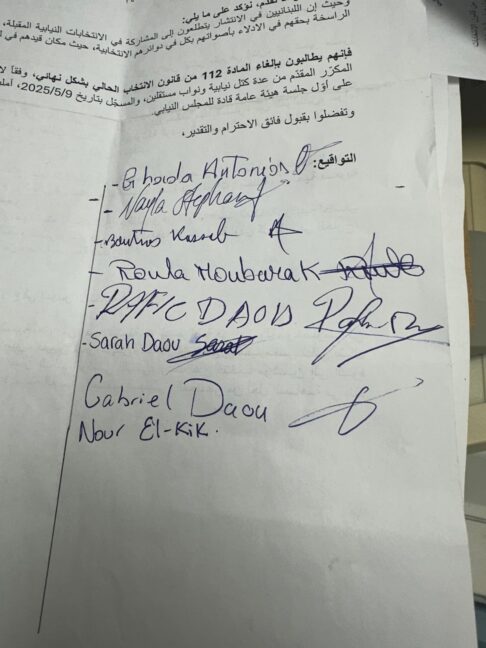 تقدم، نؤكد على ما يلي:
وحيث إن اللبنانيين في الانتشار يتطلعون إلى المشاركة في الانتخابات النيابية المقبلة،
الراسخة بحقهم في الادلاء بأصواتهم بكل في دوائرهم الانتخابية، حيث مكان قيدهم في
فإنهم يطالبون بإلغاء المادة 112 من قانون الانتخاب الحالي بشكل نهائي، وفقاً
المكرر المقدّم من عدة كتل نيابية ونواب مستقلين، والمسجل بتاريخ 2025/5/9،
على أوّل جلسة هيئة عامة قادة للمجلس النيابي.
وتفضلوا بقبول فائق الاحترام والتقدير،
التواقيع:
- Ghada Antonios
- Nayla Stephan
- Boutros Kassab
- Roula Moubarak
- RAFIC DAOU
- Sarah Daou
Gabriel Daou
Nour El-Kik.